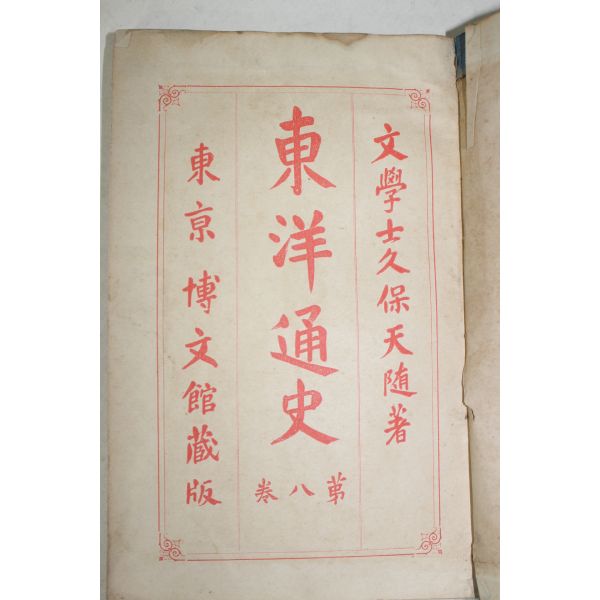 文學士久保天随著
東洋通史
第八卷
東亰 博文館蔵版